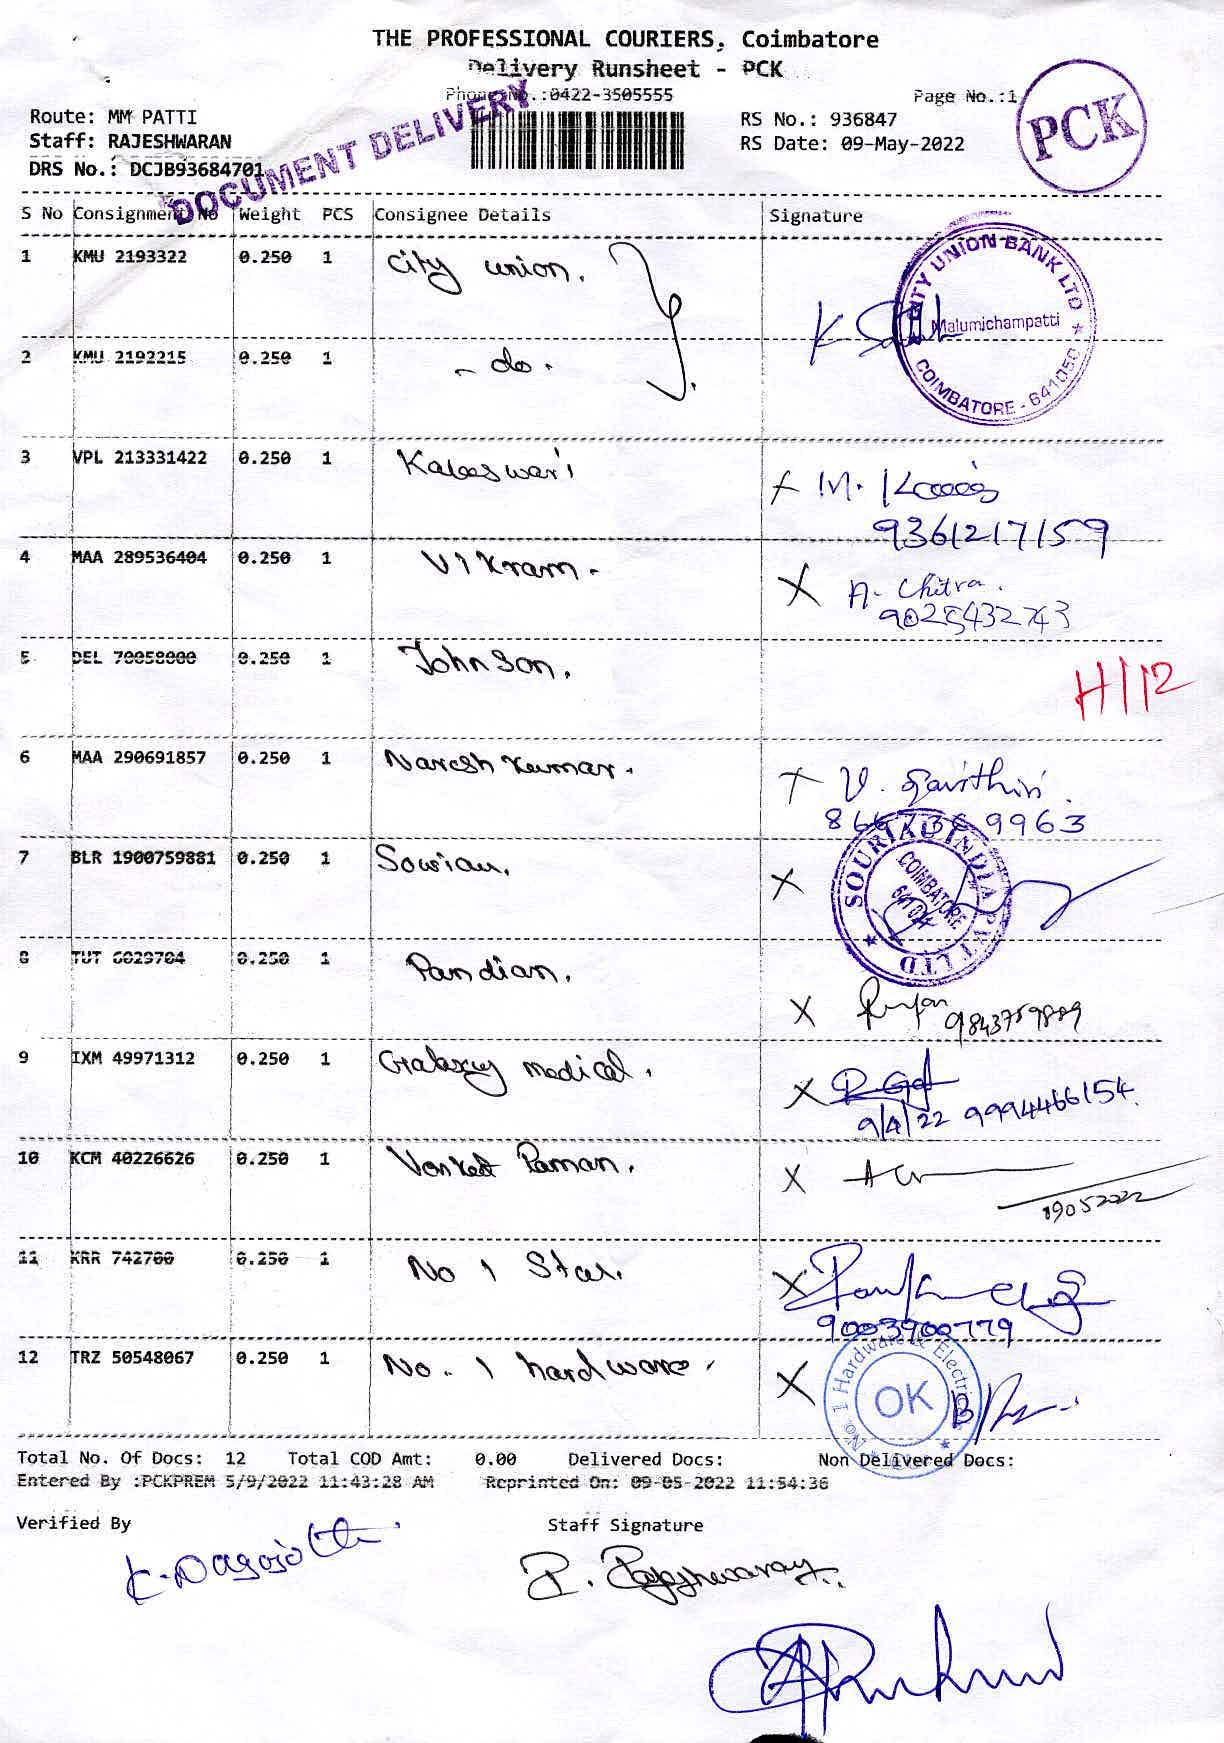 THE PROFESSIONAL COURIERS, Coimbatore
Delivery Runsheet - PCK
Phone No.:0422-3505555
Page No.:1
Route: MM PATTI
RS No.: 936847
Staff: RAJESHWARAN
RS Date: 09-May-2022
DRS No.: DCJB93684701
DOCUMENT DELIVERY
PCK
S No Consignment No Weight PCS Consignee Details Signature
1 KMU 2193322 0.250 1 City union.
CITY UNION BANK LTD
Malumichampatti
COIMBATORE - 641050
2 KMU 2192215 0.250 1 - do.
3 VPL 213331422 0.250 1 Kaleswari
9361217159
4 MAA 289536404 0.250 1 Vikram. A. Chitra.
9025432743
5 DEL 70058000 0.250 1 Johnson. H/12
6 MAA 290691857 0.250 1 Naresh Kumar.
7 BLR 1900759881 0.250 1 Souriau.
SOURIAU INDIA PVT LTD
COIMBATORE
8 TUT 6029704 0.250 1 Pandian.
9 IXM 49971312 0.250 1 Galaxy medical.
9/4/22 9994466154.
10 KCM 40226626 0.250 1 Venkat Raman.
09052022
11 KRR 742700 0.250 1 No 1 Star.
9003900779
12 TRZ 50548067 0.250 1 No. 1 hardware.
No. 1 Hardware & Electricals
OK
Total No. Of Docs: 12 Total COD Amt: 0.00 Delivered Docs: Non Delivered Docs:
Entered By :PCKPREM 5/9/2022 11:43:28 AM Reprinted On: 09-05-2022 11:54:36
Verified By Staff Signature
P. Rajeshwaran